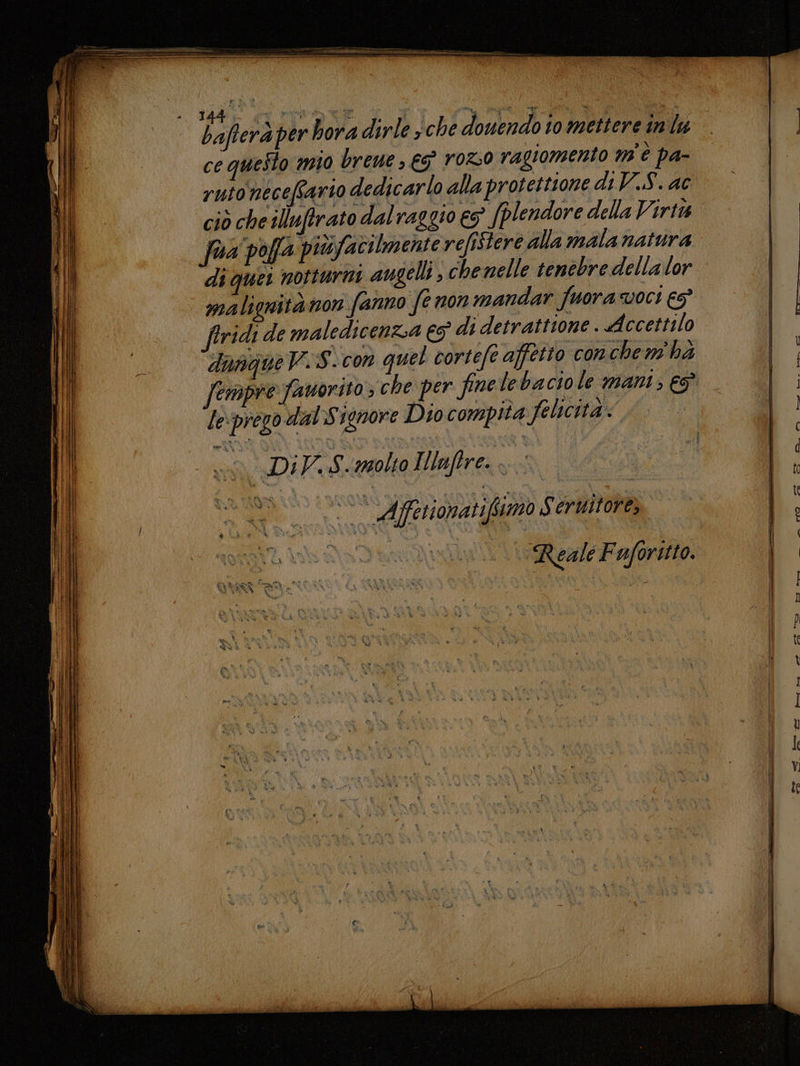 144
basterà per hora dirle, che douendo io mettere in lu
ce questo mio breue, & rozo ragiomento m'è pa-
ruto necessario dedicarlo alla protettione di V.S. ac
ciò che illustrato dal raggio & splendore della Virtù
sua possa più facilmente resistere alla mala natura
di quei notturni augelli, che nelle tenebre della lor
malignità non sanno se non mandar fuora voci &
stridi de maledicenza & di detrattione. Accettilo
dunque V.S. con quel cortese affetto con che m'ha
sempre fauorito, che per fine le bacio le mani, &
le prego dal Signore Dio compita felicità.
Di V.S. molto Illustre.
Affetionatissimo Seruitore,
Reale Fusoritto.